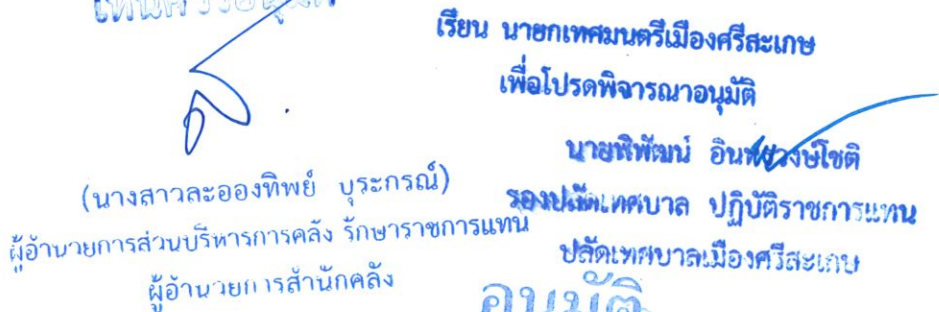 เห็นควรอนุมัติ
(นางสาวละอองทิพย์ บุระกรณ์)
ผู้อำนวยการส่วนบริหารการคลัง รักษาราชการแทน
ผู้อำนวยการสำนักคลัง
เรียน นายกเทศมนตรีเมืองศรีสะเกษ
เพื่อโปรดพิจารณาอนุมัติ
นายพิพัฒน์ อินทรวงษ์โชติ
รองปลัดเทศบาล ปฏิบัติราชการแทน
ปลัดเทศบาลเมืองศรีสะเกษ
อนุมัติ